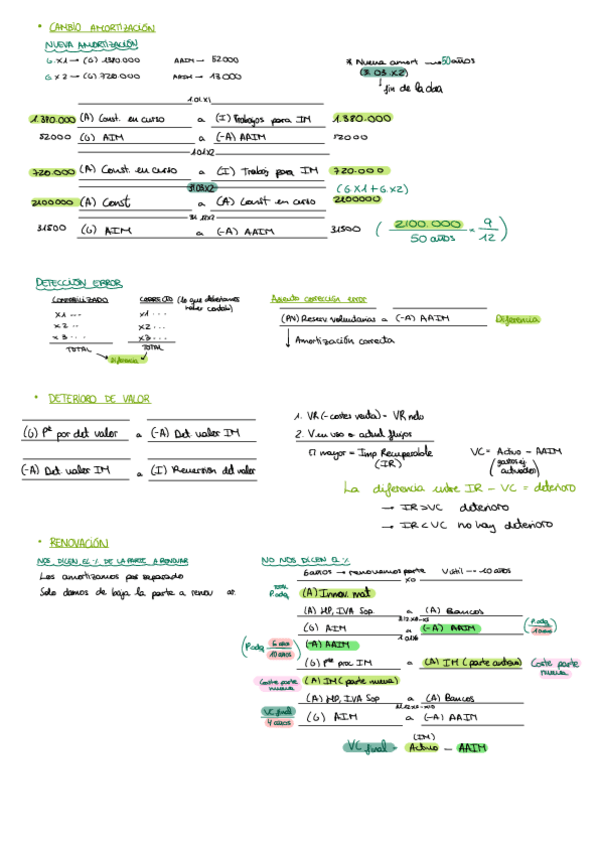 • CAMBIO AMORTIZACIÓN
NUEVA AMORTIZACIÓN
G. X1 → (G) 1380.000 AAIM → 52000
G X2 → (G) 720.000 AAIM → 13000
* Nueva amort → 50 años
(31.03.X2)
↓ fin de la obra
1.01.X1
1.380.000 (A) Const. en curso a (I) Trabajos para IM 1.380.000
52000 (G) AIM a (-A) AAIM 52000
1.01.X2
720.000 (A) Const. en curso a (I) Trabaj para IM 720.000
31.03.X2 (G X1 + G X2)
2100000 (A) Const a (A) Const en curso 2100000
31.12.X2
31500 (G) AIM a (-A) AAIM 31500 (2100.000 / 50 años × 9/12)
DETECCIÓN ERROR
CONTABILIZADO CORRECTO (lo que deberíamos haber contab)
X1 ... X1 ...
X2 .. X2 ...
X3 ... X3 ...
TOTAL TOTAL
Diferencia
Asiento corrección error
(PN) Reserv voluntarias a (-A) AAIM Diferencia
↓ Amortización correcta
• DETERIORO DE VALOR
(G) Pº por det valor a (-A) Det valor IM
(-A) Det. valor IM a (I) Reversion del valor
1. VR (- costes venta) = VR neto
2. V. en uso = actual flujos
mayor = Imp Recuperable
(IR)
VC = Activo - AAIM
La diferencia entre IR - VC = deterioro
→ IR > VC deterioro
→ IR < VC no hay deterioro
• RENOVACIÓN
NOS DICEN EL % DE LA PARTE A RENOVAR
Los amortizamos por separado
Solo damos de baja la parte a renov
NO NOS DICEN EL %
6 años → renovamos parte V útil --- 10 años
X0
TOTAL P. adq (A) Inmov. mat
(A) HP, IVA Sop a (A) Bancos
(G) AIM a (-A) AAIM (P. adq / 10 años)
(P. adq 6 años / 10 años) (-A) AAIM
(G) Pº proc IM a (A) IM (parte antigua) Coste parte nueva
Coste parte nueva (A) IM (parte nueva)
(A) HP, IVA Sop a (A) Bancos
VC final / 4 años (G) AIM a (-A) AAIM
(IM)
VC final = Activo - AAIM